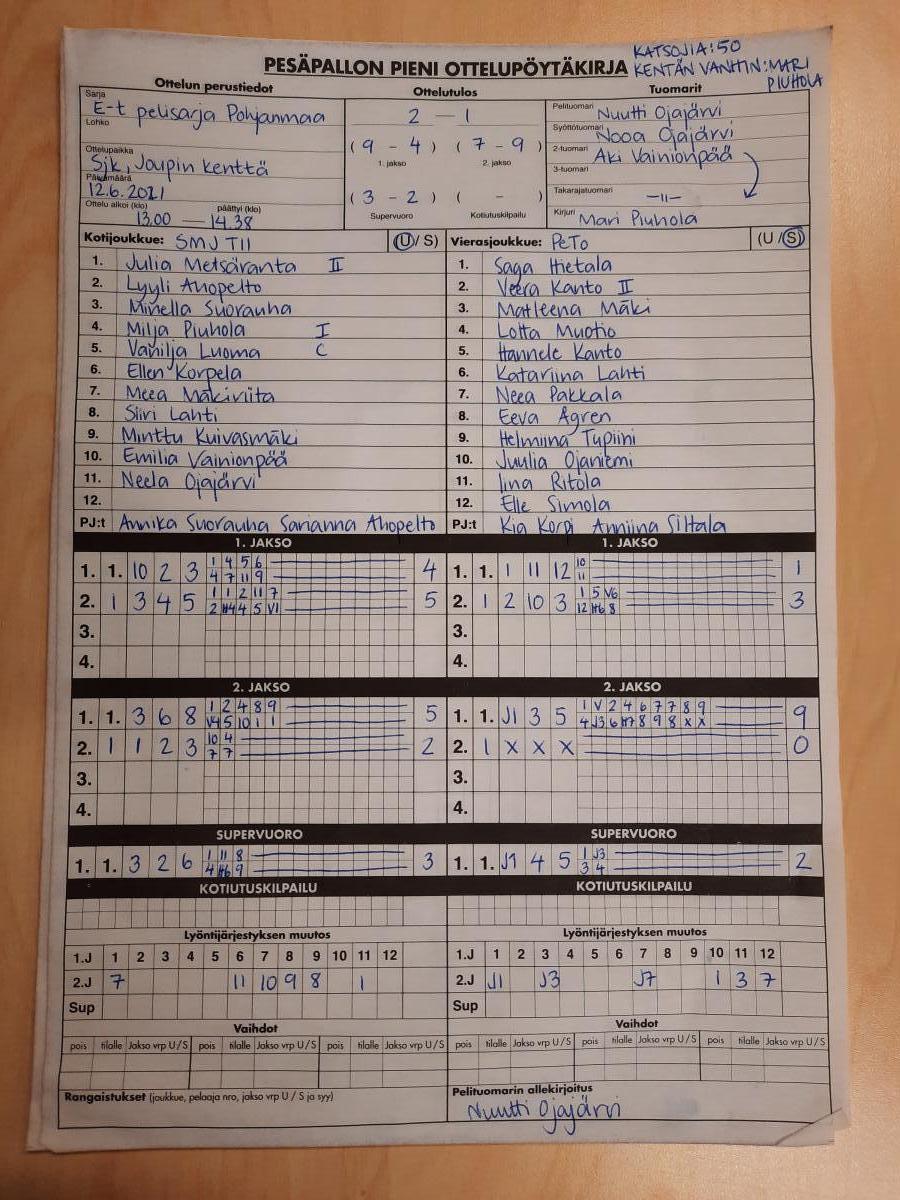 PESÄPALLON PIENI OTTELUPÖYTÄKIRJA
KATSOJIA: 50
KENTÄN VANHIN: MARI
PIUHOLA
Ottelun perustiedot
Ottelutulos
Tuomarit
Sarja
E-t pelisarja Pohjanmaa
Lohko
Ottelupaikka
Sjk, Joupin kenttä
Päivämäärä
12.6.2021
Ottelu alkoi (klo) päättyi (klo)
13.00 — 14.38
2 — 1
( 9 - 4 ) ( 7 - 9 )
1. jakso 2. jakso
( 3 - 2 ) ( - )
Supervuoro Kotiutuskilpailu
Pelituomari Nuutti Ojajärvi
Syöttötuomari Nooa Ojajärvi
2-tuomari Aki Vainionpää
3-tuomari
Takarajatuomari —11—
Kirjuri Mari Piuhola
Kotijoukkue: SMJ TII (U/ S)
1. Julia Metsäranta II
2. Lyyli Ahopelto
3. Minella Suorauha
4. Milja Piuhola I
5. Vanilja Luoma C
6. Ellen Korpela
7. Meea Mäkiviita
8. Siiri Lahti
9. Minttu Kuivasmäki
10. Emilia Vainionpää
11. Neela Ojajärvi
12.
PJ:t Annika Suorauha Sarianna Ahopelto
Vierasjoukkue: PeTo (U / S)
1. Saga Hietala
2. Veera Kanto II
3. Matleena Mäki
4. Lotta Muotio
5. Hannele Kanto
6. Katariina Lahti
7. Neea Pakkala
8. Eeva Ågren
9. Helmiina Tupiini
10. Juulia Ojaniemi
11. Iina Ritola
12. Elle Simola
PJ:t Kia Korpi Anniina Siltala
1. JAKSO
1. 1. 10 2 3 1 4 5 6 4
4 7 11 9
2. 1 3 4 5 1 1 2 11 7 5
2 H4 4 5 V1
3.
4.
1. JAKSO
1. 1. 1 11 12 10 1
11
2. 1 2 10 3 1 5 V6 3
12 H6 8
3.
4.
2. JAKSO
1. 1. 3 6 8 1 2 4 8 9 5
V4 5 10 1 1
2. 1 1 2 3 10 4 2
7 7
3.
4.
2. JAKSO
1. 1. J1 3 5 1 V 2 4 6 7 7 8 9 9
4 J3 6 H7 8 9 8 X X
2. 1 X X X 0
3.
4.
SUPERVUORO
1. 1. 3 2 6 1 11 8 3
4 H6 9
SUPERVUORO
1. 1. J1 4 5 1 J3 2
3 4
KOTIUTUSKILPAILU
KOTIUTUSKILPAILU
Lyöntijärjestyksen muutos
1.J 1 2 3 4 5 6 7 8 9 10 11 12
2.J 7 11 10 9 8 1
Sup
Lyöntijärjestyksen muutos
1.J 1 2 3 4 5 6 7 8 9 10 11 12
2.J J1 J3 J7 1 3 7
Sup
Vaihdot
pois tilalle Jakso vrp U / S pois tilalle Jakso vrp U / S pois tilalle Jakso vrp U / S
Vaihdot
pois tilalle Jakso vrp U / S pois tilalle Jakso vrp U / S pois tilalle Jakso vrp U / S
Rangaistukset (joukkue, pelaaja nro, jakso vrp U / S ja syy)
Pelituomarin allekirjoitus
Nuutti Ojajärvi